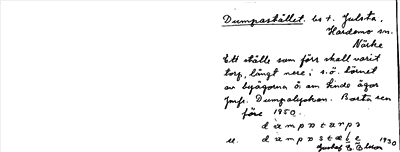 Dumpastället. bs t. Julsta,
Hardemo sn.
Närke
Ett ställe som förr skall varit
torp, längst nere i s.ö. hörnet
av byägorna å
Jmfr. Dumpalyckan. Borta sen
före 1850.
dampstarps
u. dampstæle
Gustaf E. Olson 1930